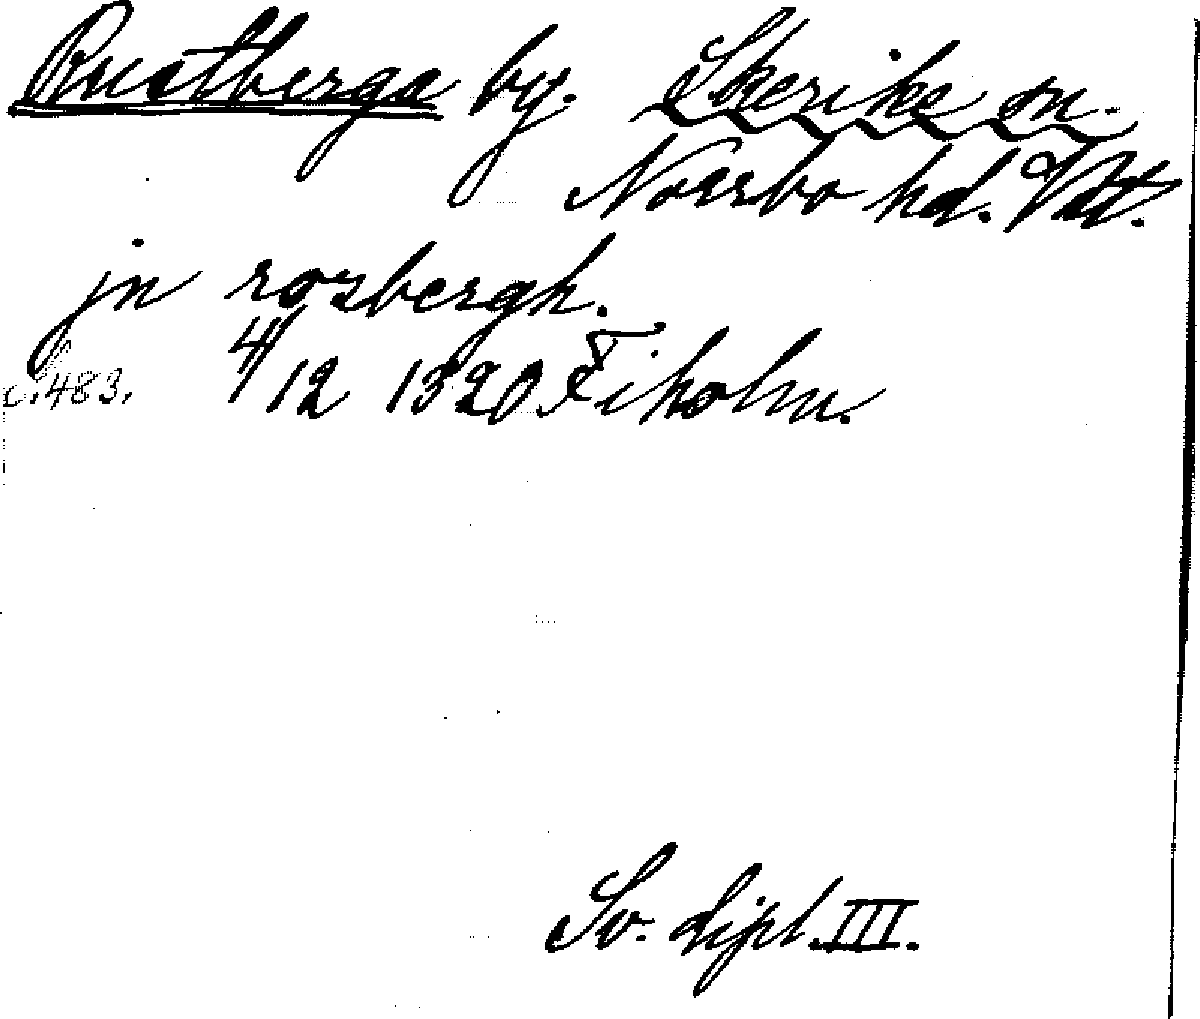 Rustberga by. Skeriks sn.
Norrbo hd. Vstm.
jn rozbergh.
s. 483. 4/12 1320 Fiholm.
Sv. dipl. III.